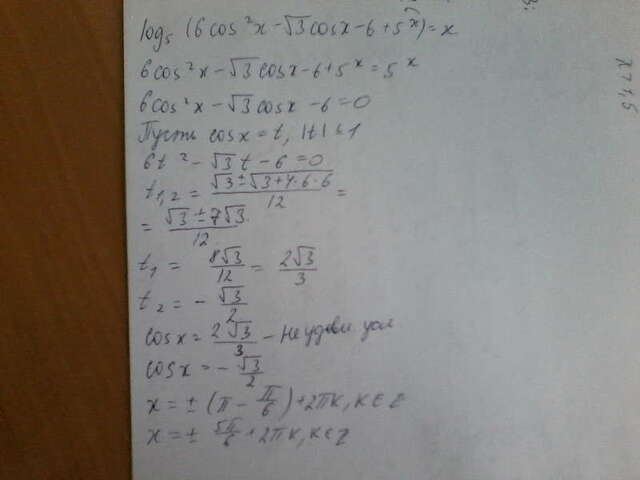 log₅ (6cos²x - √3cosx - 6 + 5ˣ) = x
6cos²x - √3cosx - 6 + 5ˣ = 5ˣ
6cos²x - √3cosx - 6 = 0
Пусть cosx = t, |t| ≤ 1
6t² - √3t - 6 = 0
t₁,₂ = (√3 ± √(3+4·6·6))/12 =
= (√3 ± 7√3)/12
t₁ = 8√3/12 = 2√3/3
t₂ = - √3/2
cosx = 2√3/3 - не удовл усл
cosx = - √3/2
x = ± (π - π/6) + 2πk, k ∈ z
x = ± 5π/6 + 2πk, k ∈ z